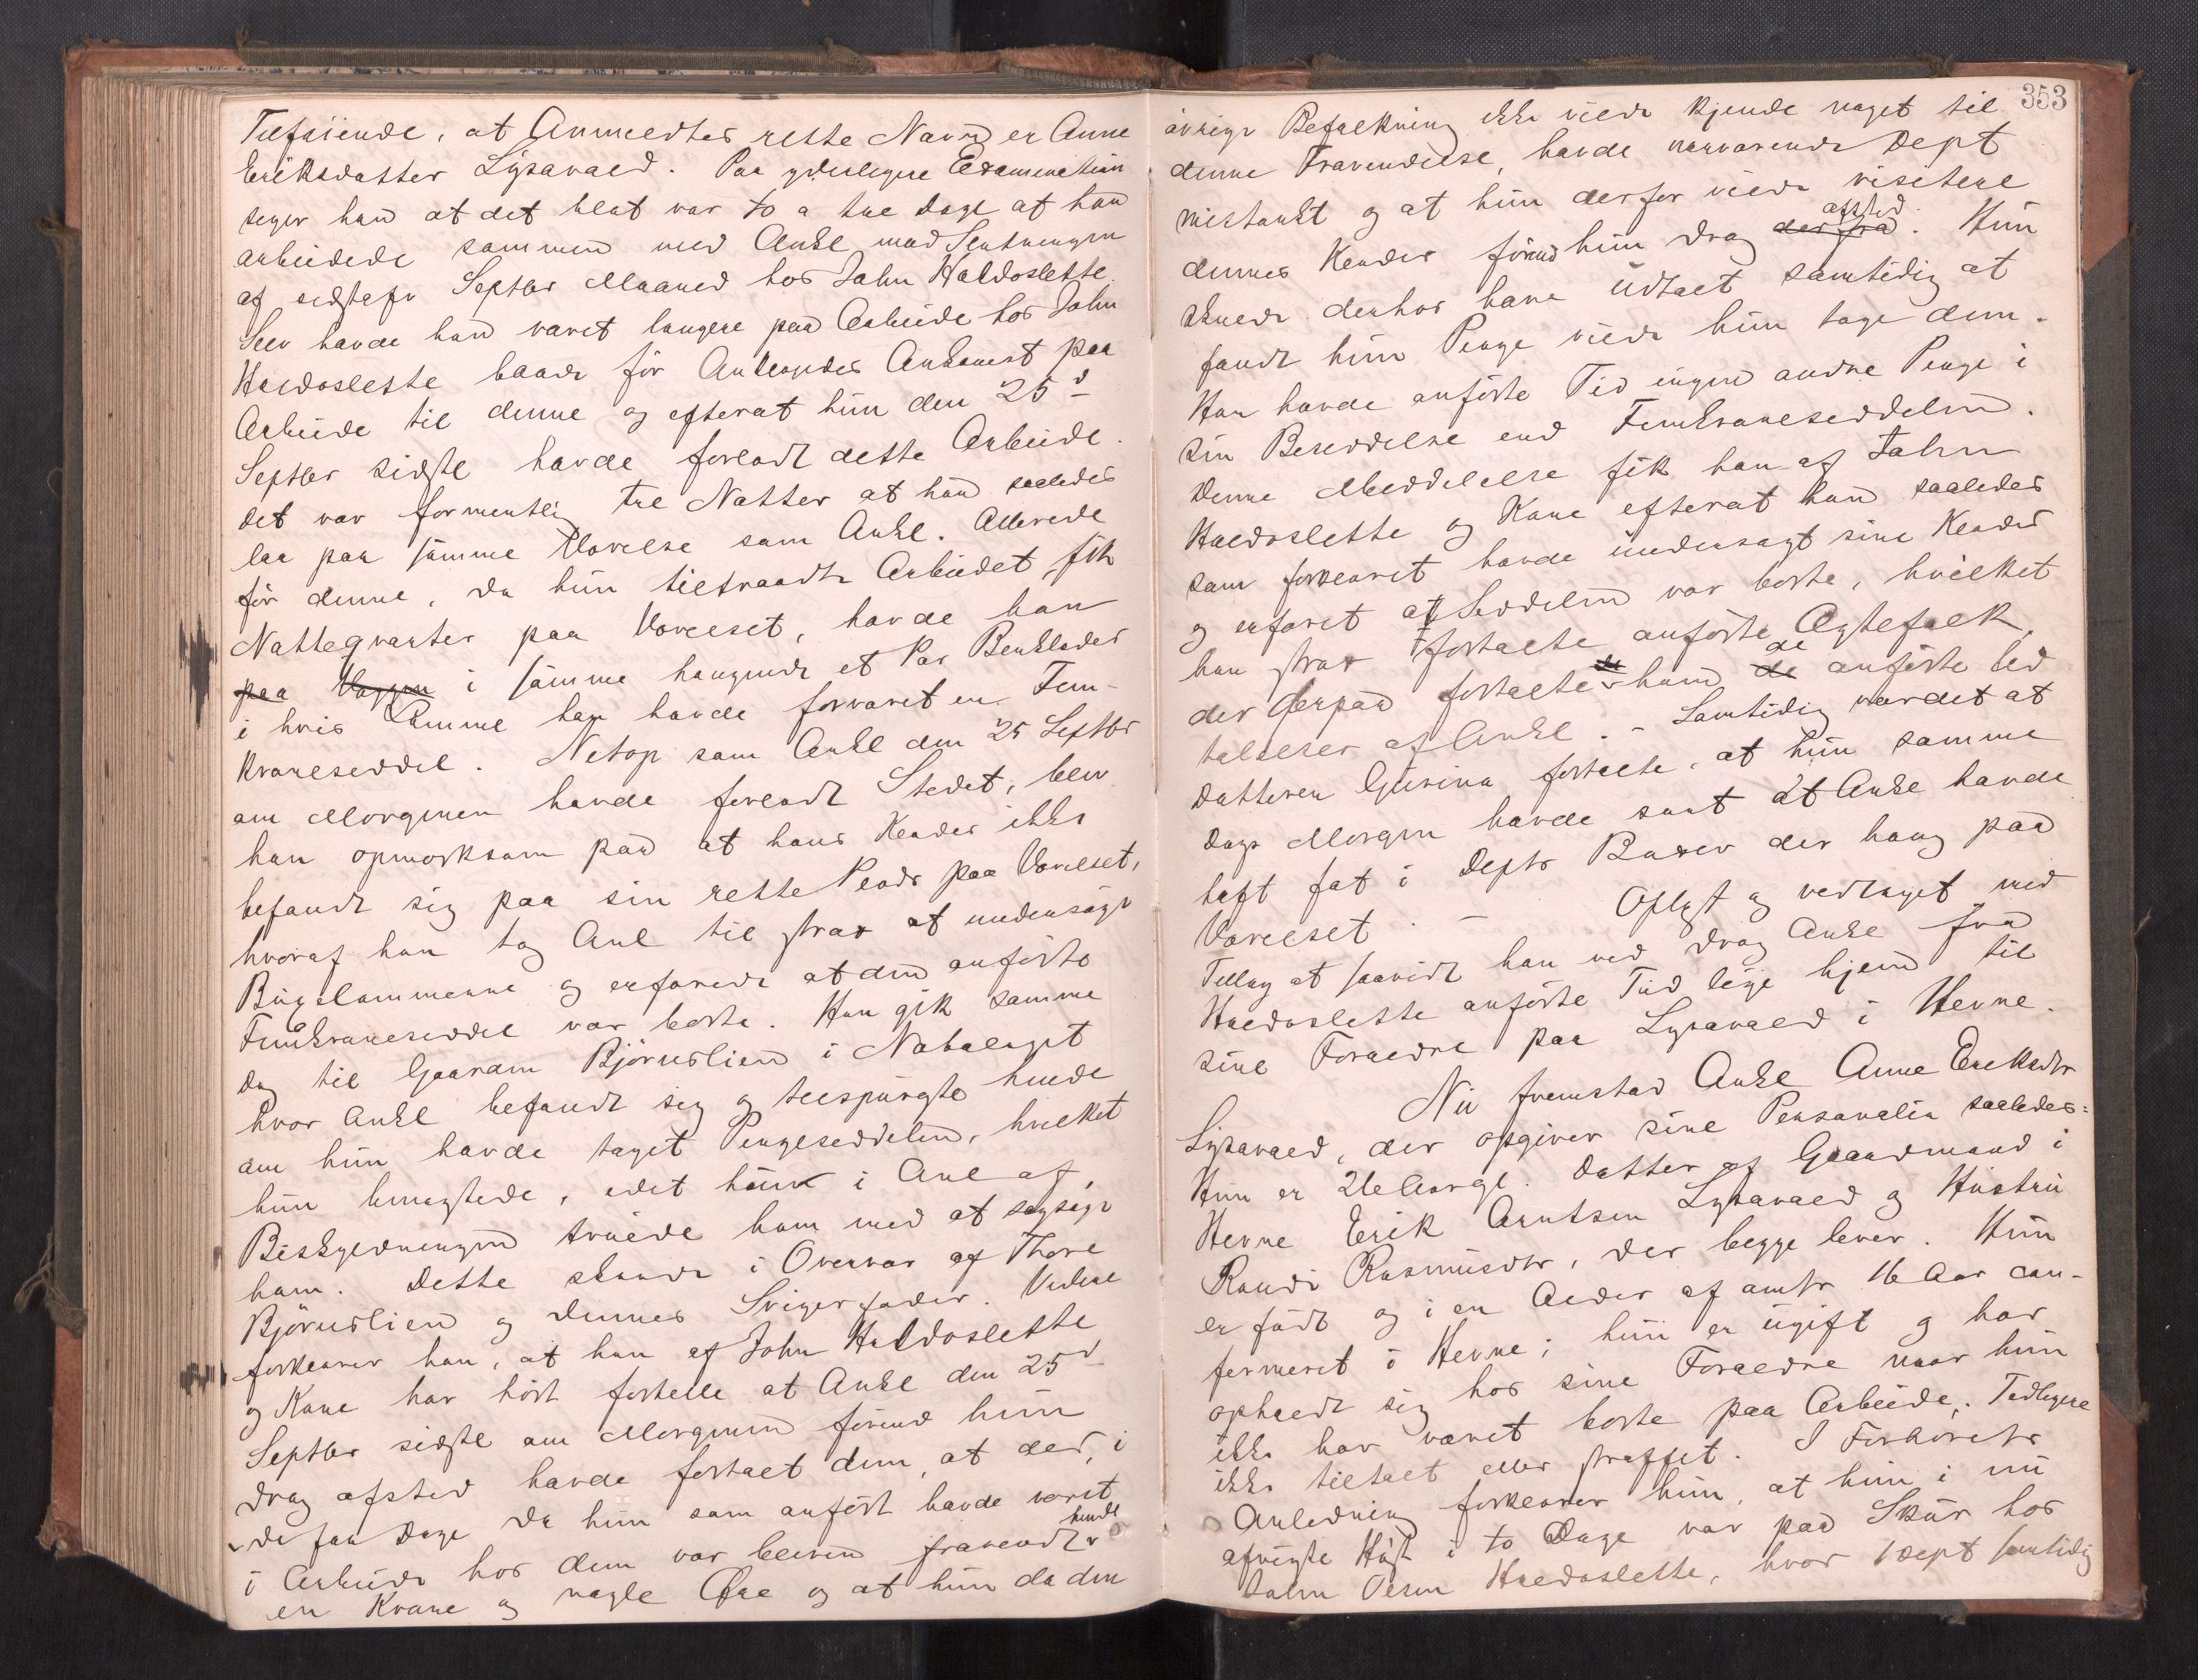 Tilføiende, at Anmeldtes rette Navn er Anne
Eriksdatter Lysavold. Paa yderligere Examination
siger han at det blot var to a tre Dage at han
arbeidede sammen med Ankl mod Slutningen
af sidstefr Septbr Maaned hos John Haldoslette.
Selv havde han været længere paa Arbeide hos John
Haldoslette baade før Anklagedes Ankomst paa
Arbeide til denne og efterat hun den 25d
Septbr sidste havde forladt dette Arbeide.
det var formentlig tre Nætter at han saaledes
laa paa samme Værelse som Ankl. Allerede
før denne, da hun tiltraadte Arbeidet, fik
Natteqvarter paa Værelset, havde han
paa Væggen i samme hængende et Par Benklæder
i hvis Lomme han havde forvaret en Fem-
kroneseddel. Netop som Ankl den 25 Septbr
om Morgenen havde forladt Stedet, blev
han opmærksom paa at hans Klæder ikke
befandt sig paa sin rette Plads paa Værelset,
hvoraf han tog Anl til strax at undersøge
Buxelommerne og erfarede at den anførte
Femkroneseddel var borte. Han gik samme
Dag til Gaarden Bjørnslien i Nabolaget
hvor Ankl befandt sig og tilspurgte hende
om hun havde taget Pengeseddelen, hvilket
hun benægtede, idet hun i Anl af
Beskyldningen truede ham med at sagsøge
ham. Dette skede i Overvær af Thore
Bjørnslien og dennes Svigerfader. Videre
forklarer han, at han af John Haldoslette
og Kone har hørt fortelle at Ankl den 25d
Septbr sidste om Morgenen førend hun
drog afsted havde fortalt dem, at der, i
de faa Dage da hun som anført havde været
i Arbeide hos dem var bleven fravendt hende
en Krone og nogle Øre og at hun da den
353
øvrige Befolkning ikke vilde kjende noget til
denne Fravendelse, havde nærværende Dept
mistænkt og at hun derfor vilde visitere
dennes Klæder førend hun drog derfra afsted. Hun
skulde derhos have udtalt samtidig at
fandt hun Penge vilde hun tage dem.
Han havde anførte Tid ingen andre Penge i
sin Besiddelse end Femkroneseddelen.
Denne Meddelelse fik han af John
Haldoslette og Kone efterat han saaledes
som forklaret havde undersøgt sine Klæder
og erfaret at Seddelen var borte, hvilket
han strax fortalte anførte Ægtefolk,
der derpaa fortalte ham de anførte Ud
talelser af Ankl. - Samtidig var det at
Datteren Gurina fortalte, at hun samme
Dags Morgen havde seet at Ankl havde
haft fat i Depts Buxer der hang paa
Værelset. - Oplæst og vedtaget med
Tillæg at saavidt han ved drog Ankl fra
Haldoslette anførte Tid lige hjem til
sine Forældre paa Lysavold i Hevne.
Nu fremstod Ankl Anne Eriksdtr
Lysavold, der opgiver sine Personalia saaledes:
Hun er Datter af Gaardmand i
Hevne Erik Arntsen Lysavold og Hustru
Randi Rasmusdtr, der begge lever. Hun
er født og i en Alder af omtr 16 Aar con-
fermeret i Hevne; hun er ugift og har
opholdt sig hos sine Forældre naar hun
ikke har været borte paa Arbeide. Tidligere
ikke tiltalt eller straffet. I Forhørets
Anledning forklarer hun, at hun i nu
afvigte Høst i to Dage var paa Skur hos
John Olsen Haldoslette, hvor Dept samtidig